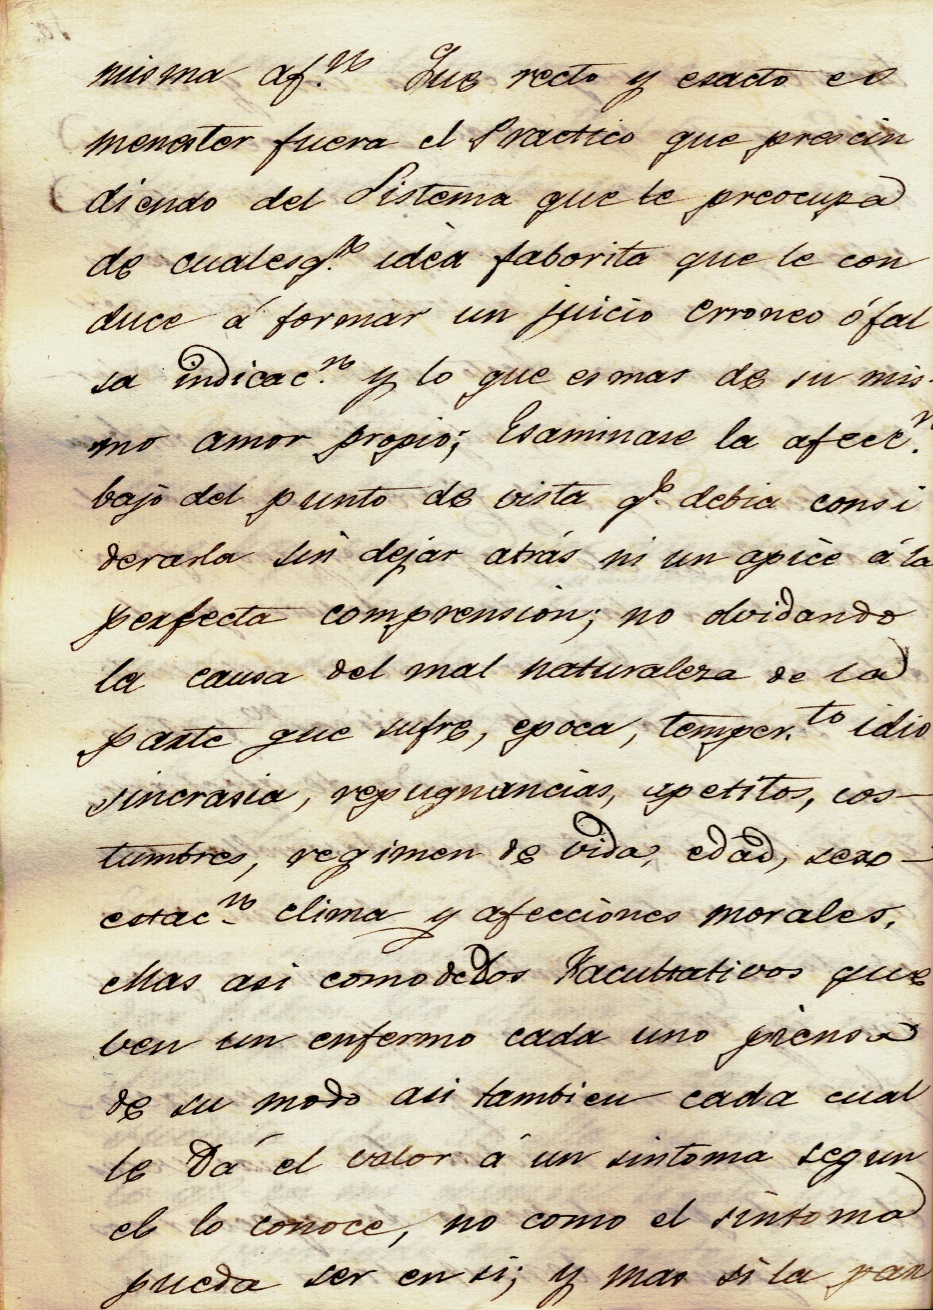 misma af.n Que recto y esacto es
menester fuera el Practico que prescin
diendo del Sistema que le preocupa
de cualesq.a idèa faborita que le con
duce á formar un juicio Erroneo ó fal
sa indicac.n y lo que es mas de su mis-
mo amor propio; Esaminase la afecc.n
bajo del punto de vista q.e debia consi
derarla sin dejar atrás ni un apice á la
perfecta comprension; no olvidando
la causa del mal naturaleza de la
parte que sufre, epoca, temper.to idio
sincrasia, repugnancias, apetitos, cos-
tumbres, regimen de vida, edad, sexo-
estac.n clima y afecciones morales.
Mas asi como de Dos Facultativos que
ven un enfermo cada uno piensa
de su modo asi tambien cada cual
le Dá el valor á un sintoma segun
el lo conoce, no como el sintoma
pueda ser en si; y mas si la pan